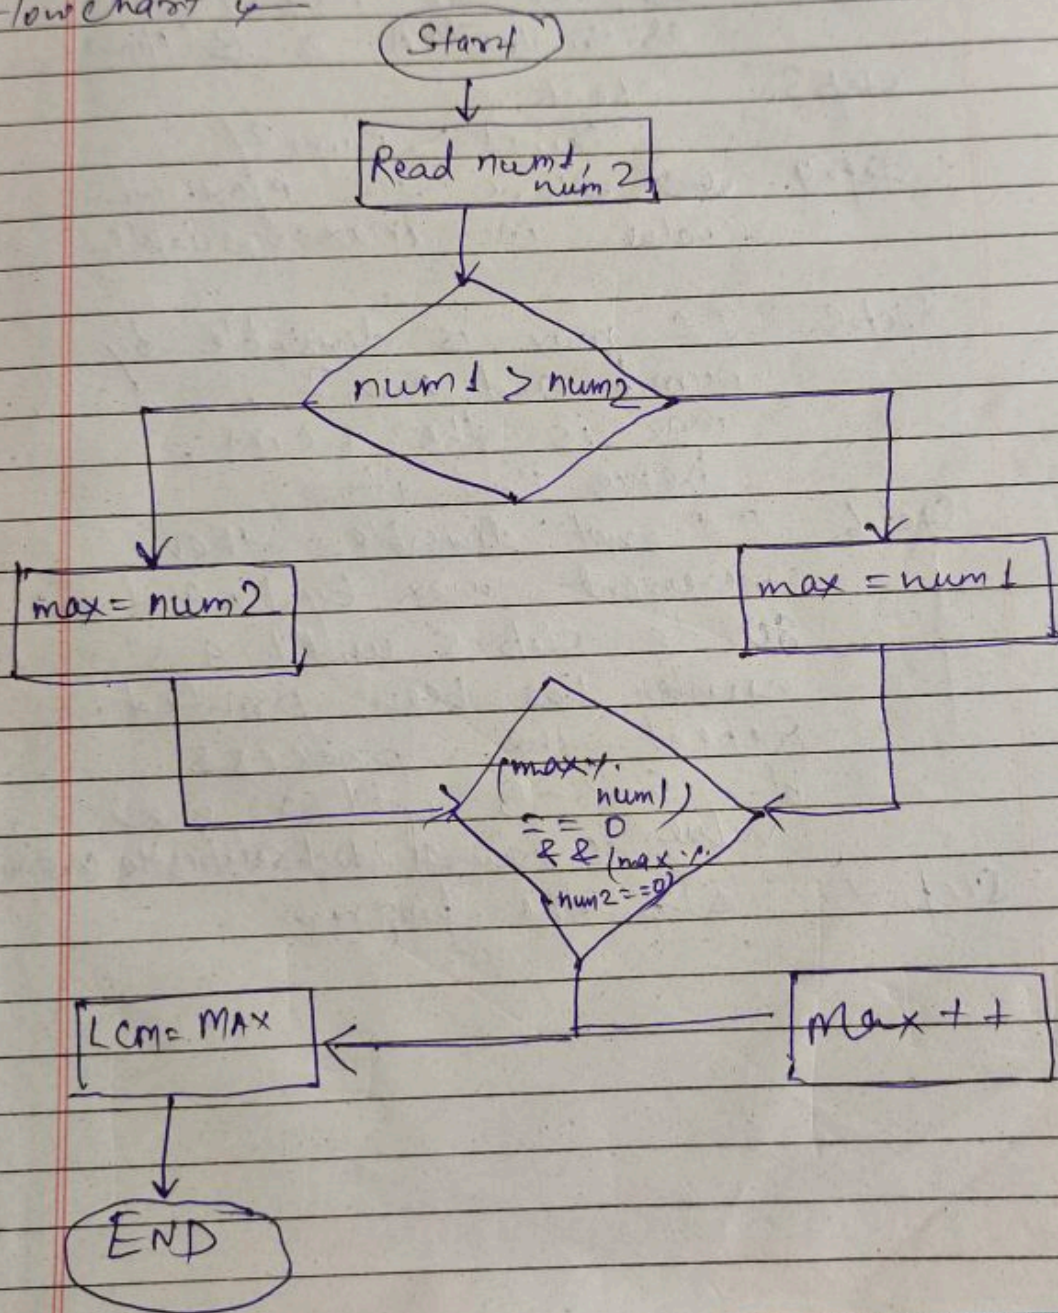 Flow Chart
Start
Read num1,
num2
num1 > num2
max = num2
max = num1
(max %
num1)
== 0
&& (max %
num2==0)
LCM= MAX
Max ++
END